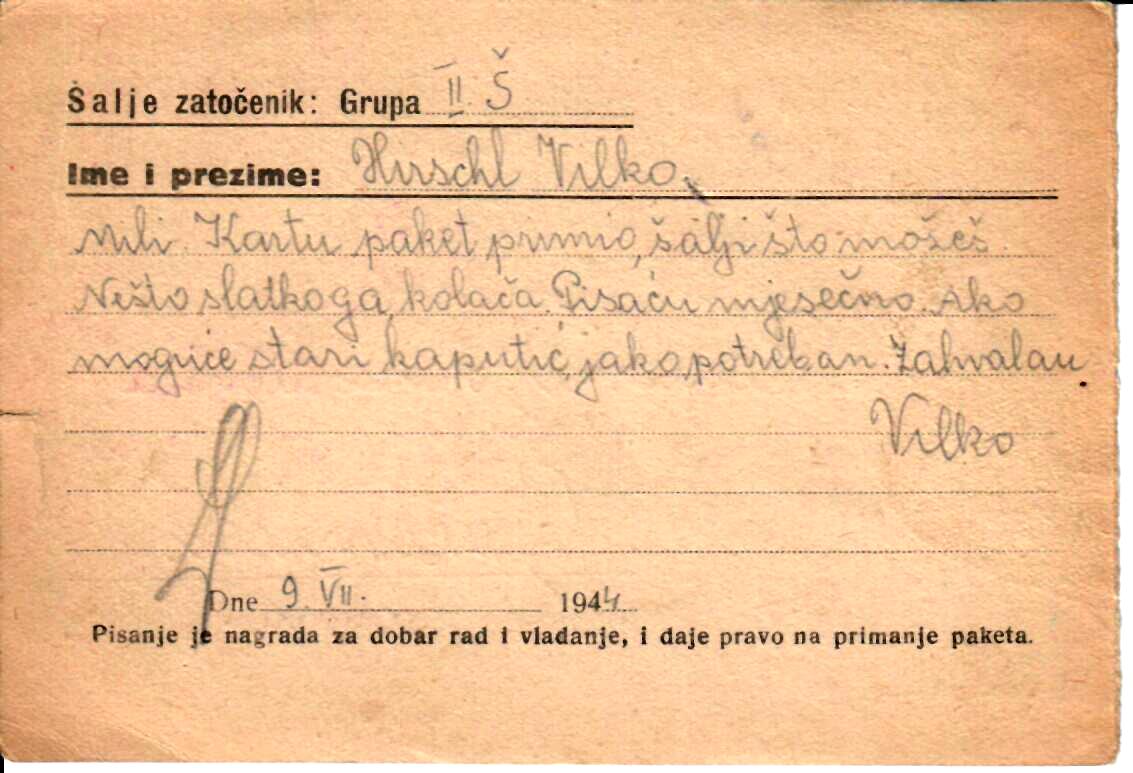 Šalje zatočenik: Grupa II Š
Ime i prezime: Hirschl Vilko,
Mili. Kartu paket primio, šalji što možeš.
Nešto slatkoga, kolača. Pisaću mjesečno. Ako
moguće stari kaputić, jako potreban. Zahvalan
Vilko
Dne 9. VII. 1944
Pisanje je nagrada za dobar rad i vladanje, i daje pravo na primanje paketa.